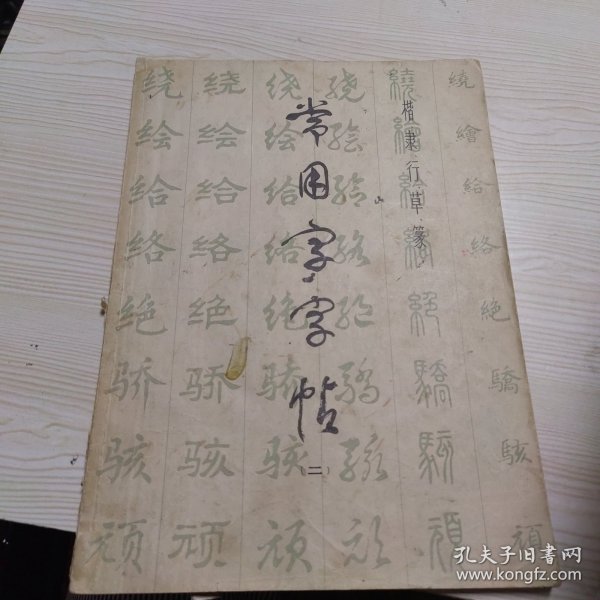 常用字字帖
（二）
楷隶行草篆
绕 绕 绕 绕 繞 繞
绘 绘 绘 绘 繪 繪
给 给 给 给 給 給
络 络 络 络 絡 絡
绝 绝 绝 绝 絕 絕
骄 骄 骄 骄 驕 驕
骇 骇 骇 骇 駭 駭
顽 顽 顽 顽 頑 頑
孔夫子旧书网
www.kongfz.com